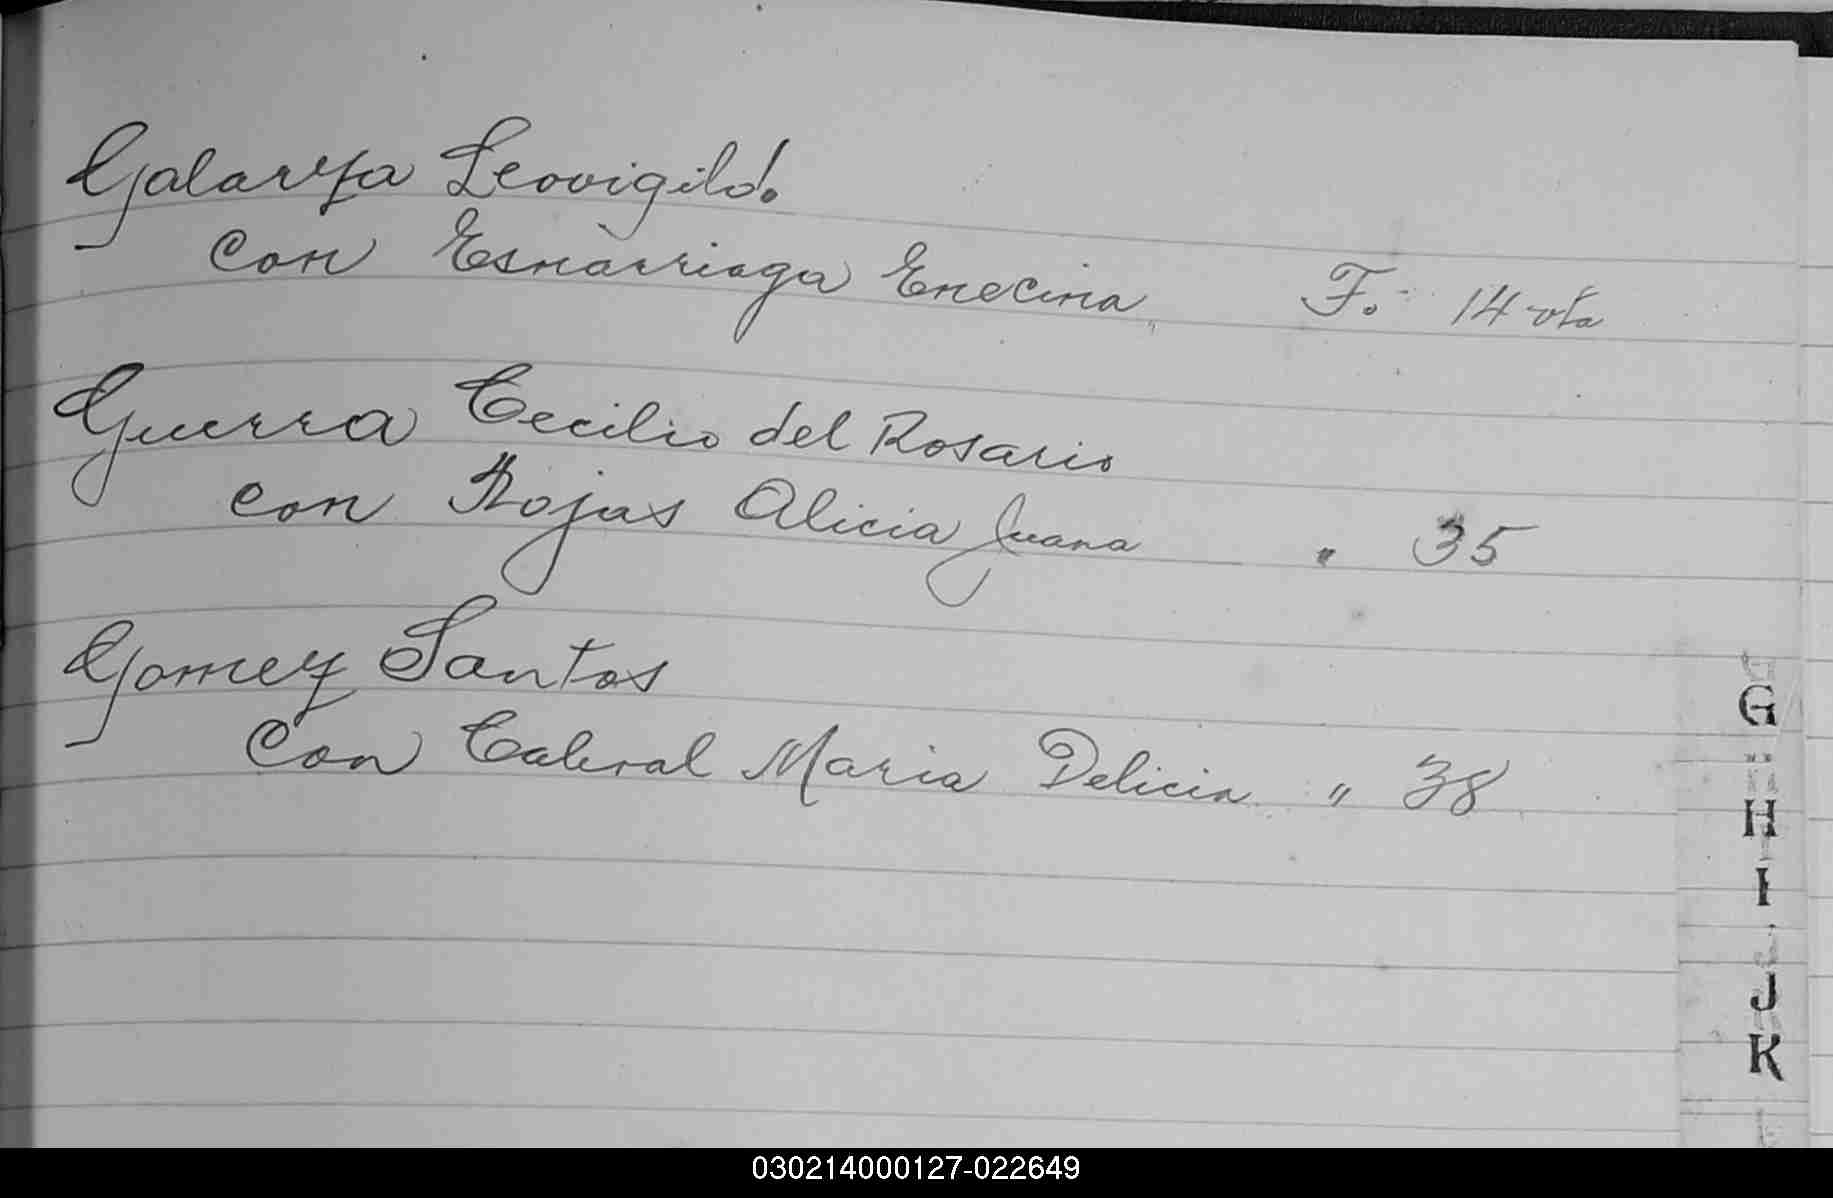 Galarza Leovigildo.
con Esnarriaga Enecina F. 14 vta
Guerra Cecilio del Rosario
con Rojas Alicia Juana " 35
Gomez Santos
Con Cabral Maria Delicia " 38
G
H
I
J
K
030214000127-022649